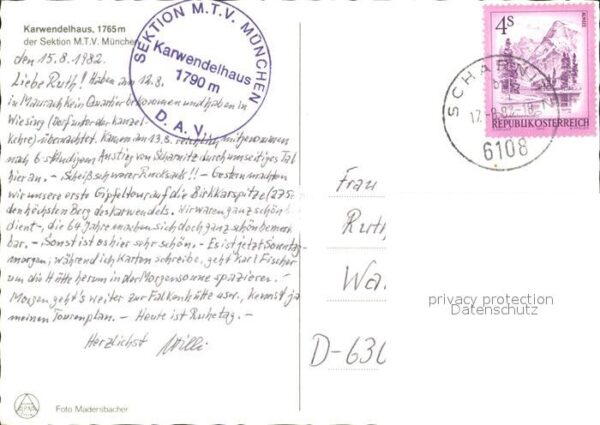 Karwendelhaus, 1765m
der Sektion M.T.V. München
den 15.8.1982
Liebe Ruth! Haben am 12.8.
in Maurach kein Quartier bekommen und haben in
Wiesing (Dorf unter der Kanzel
kehre) übernachtet. Kamen am 13.8. reichlich mitgenommen
nach 6 stündigem Anstieg von Scharnitz durch umseitiges Tal
hier an. - Scheißschwerer Rucksack!! - Gestern machten
wir unsere erste Gipfeltour auf die Birkkarspitze (275
den höchsten Berg des Karwendels. Wir waren ganz schön
dient -, die 64 Jahre machen sich doch ganz schön bemerk
bar. - Sonst ist es hier sehr schön. - Es ist jetzt Sonntag-
morgen; während ich Karten schreibe, geht Karl Fischer
um die Hütte herum in der Morgensonne spazieren. -
Morgen geht's weiter zur Falkenhütte usw., kennst ja
meinen Tourenplan. - Heute ist Ruhetag. -
Herzlichst Willi
Foto Madersbacher
SEKTION M.T.V. MÜNCHEN
Karwendelhaus
1790 m
D.A.V.
4S
ALMSEE
REPUBLIK ÖSTERREICH
SCHARNI
17.-8.82-18
6108
Frau
Ruth
Wa
D-630
privacy protection
Datenschutz